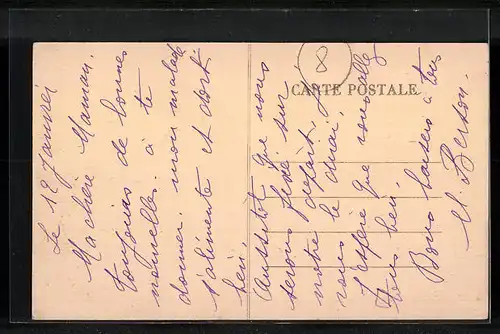 Le 12 Janvier
Ma chère Maman.
toujours de bonnes
nouvelles à te
donner. mon malade
s'alimente et dort
bien.
Aussitôt que nous
serons fixé sur
notre départ, je
vous le dirai.
J'espère que vous allez
tous bien.
Bons baisers à tous
M. Berson.
8
CARTE POSTALE